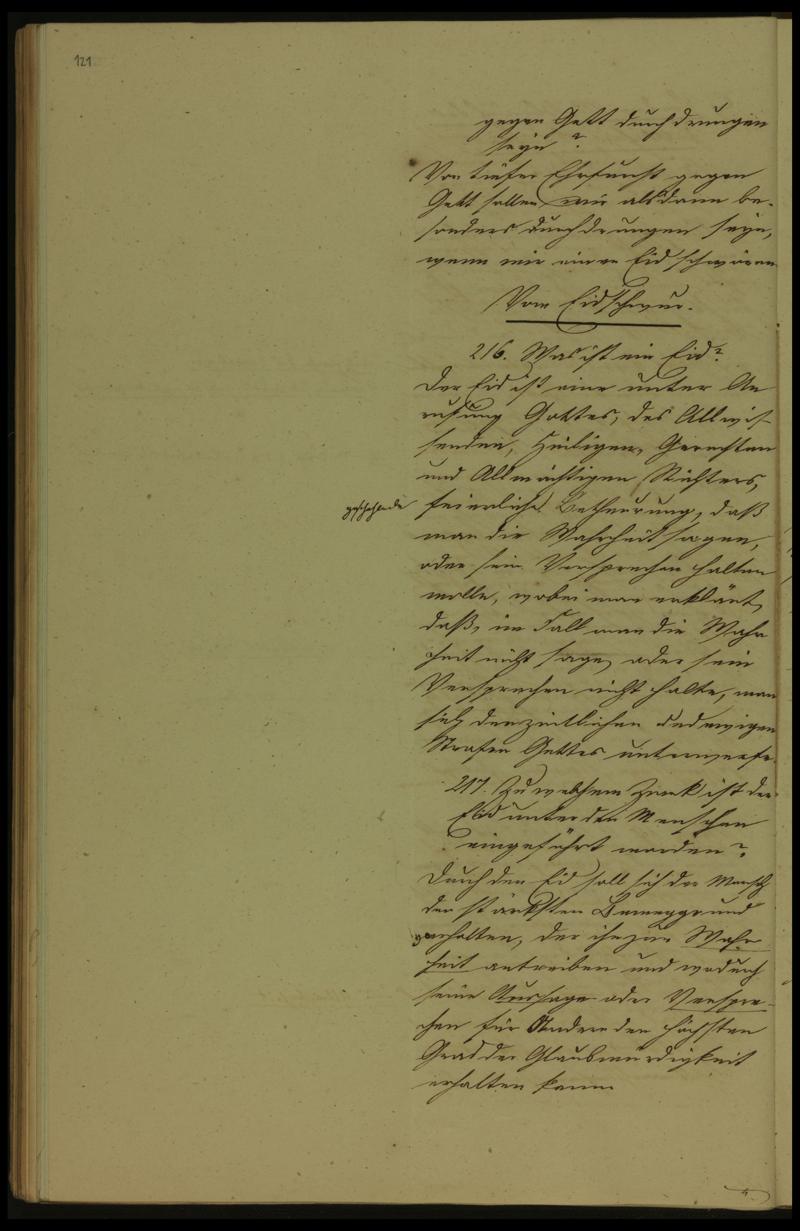 121
gegen Gott durchdrungen
seyn?
Von tiefer Ehrfurcht gegen
Gott sollen wir alsdann be-
sonders durchdrungen seyn,
wenn wir einen Eid schwören
Vom Eidschwur.
216. Was ist ein Eid?
Der Eid ist eine unter An
rufung Gottes, des Allwis-
senden, Heiligen, Gerechten
und Allmächtigen Richters,
geschehende
feierliche Betheurung, daß
man die Wahrheit sagen,
oder sein Versprechen halten
wolle, wobei man erklärt,
daß, im Fall man die Wahr
heit nicht sage, oder sein
Versprechen nicht halte, man
sich den zeitlichen und ewigen
Strafen Gottes unterwerfe.
217. Zu welchem Zwek ist der
Eid unter den Menschen
eingeführt worden?
Durch den Eid soll sich der Mensch
den stärksten Beweggrund
erhalten, der ihn zur Wahr
heit antreiben und wodurch
seine Aussage oder Verspre-
chen für Andere den höchsten
Grad der Glaubwürdigkeit
erhalten kann